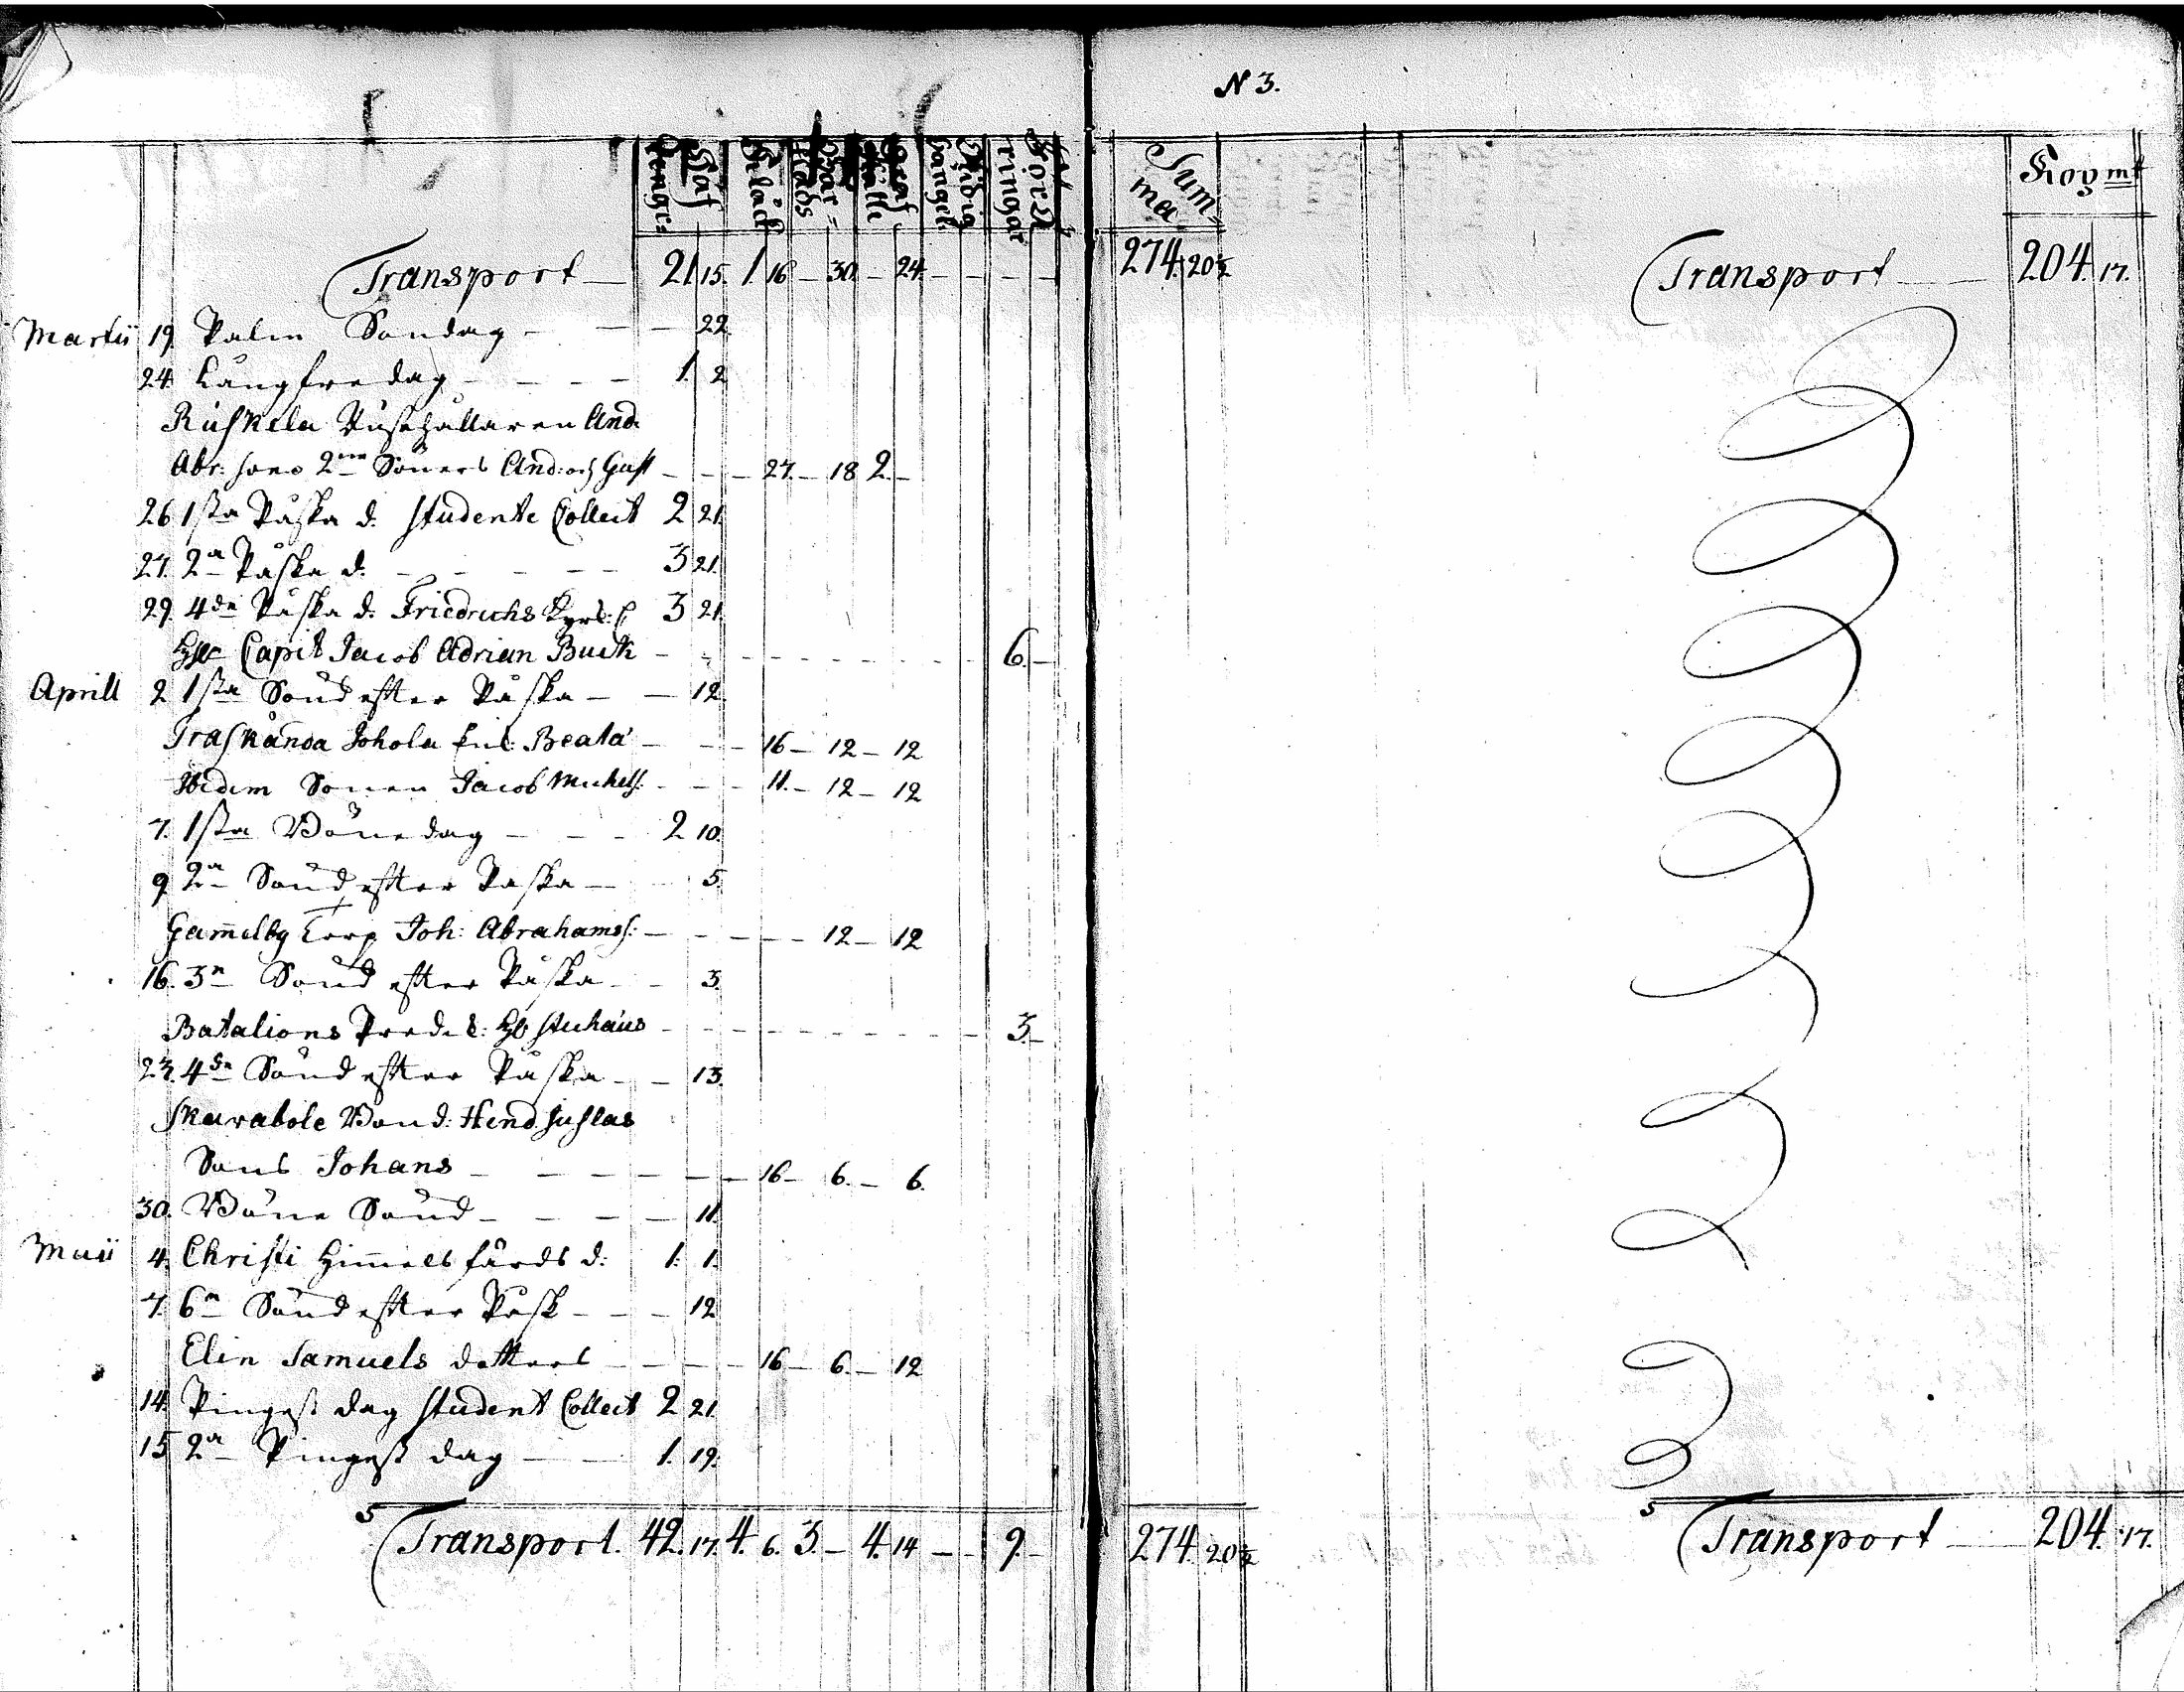 N 3.
Håf Penge= Kläck Håår= Graf ställe Tidig Förä ringar
Sum= mea
Koy mt
Transport — 21 15. 1. 16 — 30. — 24. — — — —
274. 20½
Transport — — 204. 17.
Martii 19. Palm Söndag — — — 22.
24. Långfredag — — — — 1. 2
Ruskela Rusthållaren And.
Abr: sons 2ne Söners And: och Gust — — — 27. — 18 2. —
26 1sta Påska d. Studente Collect 2 21.
27. 2a Påska d. — — — — — 3 21.
29. 4de Påska d. Friedrichs Kyrk: C 3 21.
Capit Jacob Adrian — — — 6. —
Aprill 2 1sta Sönd efter Påska — — 12.
Träskända Johola Beata — — — 16 — 12 — 12
Ibidem Sonen Jacob Michels: — — — 11. — 12 — 12
7. 1sta Bönedag — — — 2 10.
9 2a Sönd efter Påska — — 5.
Gammelby Torp Joh: Abrahamss: — — — — 12 — 12
16. 3e Sönd efter Påska — — 3.
Batalions Predik: — — — 3. —
23. 4de Sönd efter Påska — — 13.
Skarabole Bond: Hend.
Sons Johans — — — — — — 16 — 6. — 6.
30. Böne Sönd — — — — 11.
Maii 4. Christi Himmelsfärds d: 1. 1.
7. 6e Sönd efter Påsk — — — 12
Elin Samuels dotters — — — — 16 — 6. — 12
14. Pingest dag Student Collect 2 21.
15 2a Pingest dag — — 1. 19.
Transport. 42. 17. 4. 6. 3. — 4. 14 — — 9. —
274. 20½
Transport — 204. 17.